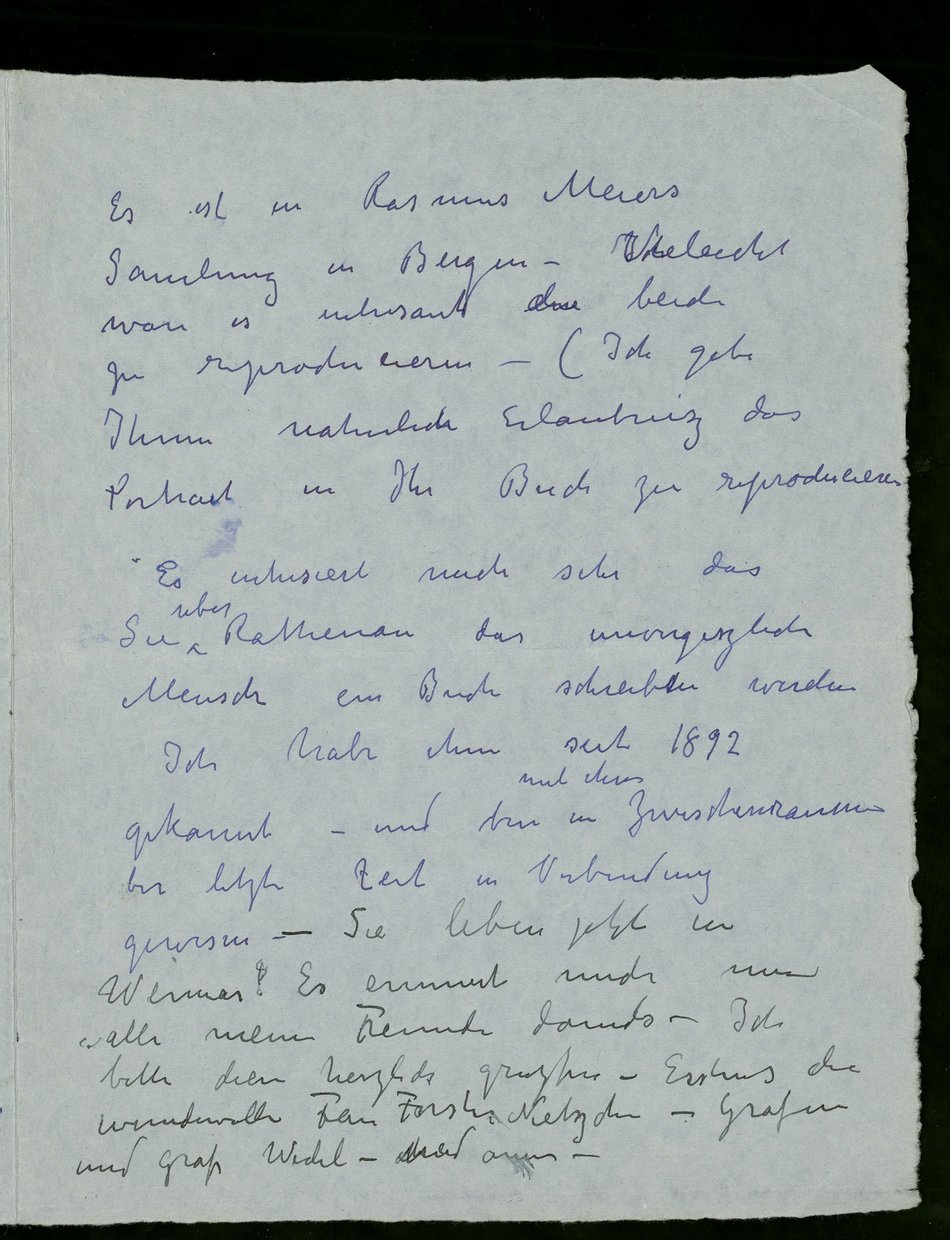 Es ist in Rasmus Meiers
Samlung in Bergen – Vieleicht
ware es intresant die beide
zu reproducieren – ( Ich gebe
Ihnen naturlich Erlaubniz das
Portrait in Ihr Buch zu reproducieren
Es intresiert mich sehr das
uber
Sie Rathenau das unvorgeszlich
Mensch ein Buch schreiben werden
Ich habe ihm seit 1892
mit ihm
gekannt – und bin in Zwischenraumen
bis letzte Zeit in Verbindung
gewesen – Sie leben jetzt in
Weimar! Es erinnert mich
alle meine Freunde damals – Ich
bitte diese herzlich grüszen – Erstens die
wundervolle Frau Forster Nietzsche – Grafin
und Graf Wedel –